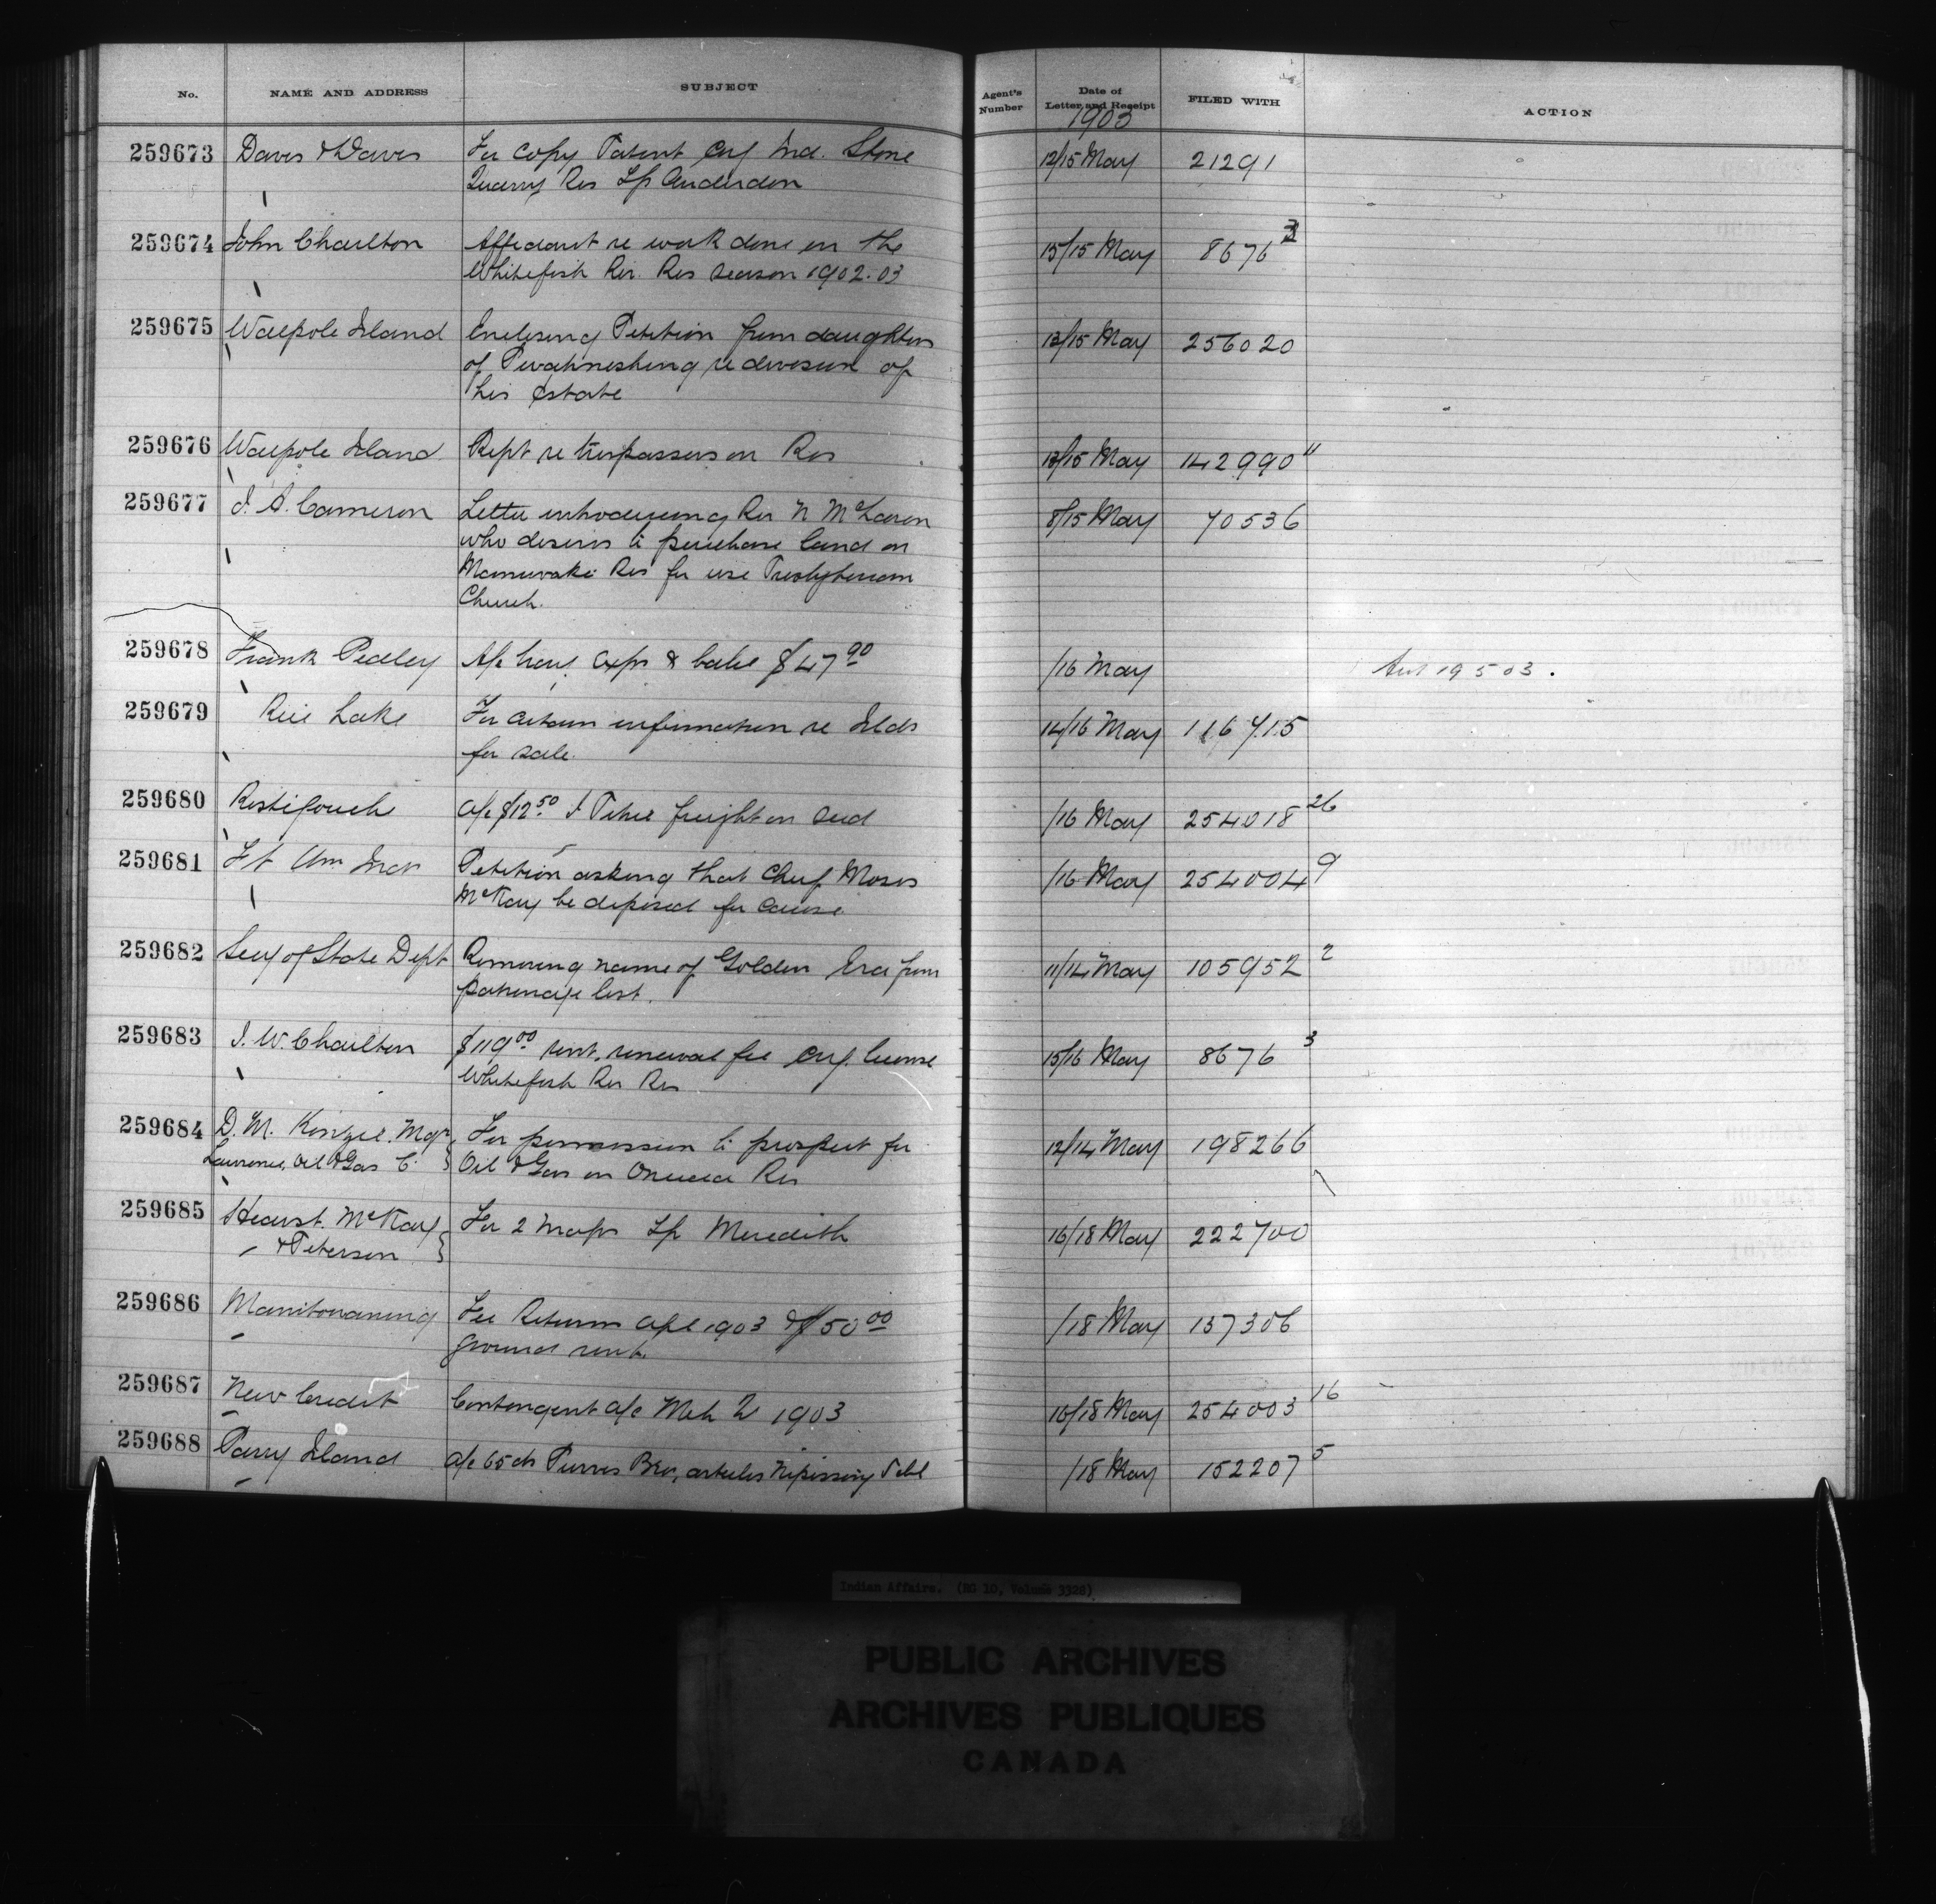 No. NAME AND ADDRESS SUBJECT Agent's Number Date of Letter and Receipt FILED WITH ACTION
1903
259673 Davis & Davis For copy Patent cvg Ind. Stone 12/15 May 21291
Quarry Res Tp Anderdon
259674 John Charlton Affidavit re work done on the 15/15 May 8676 3
Whitefish Riv. Res season 1902-03
259675 Walpole Island Enclosing Petition from daughters 13/15 May 256020
of re division of
his Estate
259676 Walpole Island Rept re trespassers on Res 13/15 May 142990 11
259677 J. A. Cameron Letter introducing Rev N McLaren 8/15 May 70536
who desires to purchase land on
Maniwaki Res for use Presbyterian
Church.
259678 Frank Pedley A/c trav. exps & cabs $47.90 /16 May Aut 19 5 03.
259679 Rice Lake For certain information re Islds 14/16 May 116715
for sale.
259680 Restigouche A/c $12.50 J freight on seed /16 May 254018 26
259681 Ft Wm Inds Petition asking that Chief Moses /16 May 254004 9
McKay be deposed for cause
259682 Secy of State Dept Removing name of Golden Era from 11/14 May 105952 2
patronage list.
259683 J. W. Charlton $119.00 rent, renewal fee cvg. license 15/16 May 8676 3
Whitefish Riv Res
259684 D. M. Kinzie. Mgr. For permission to prospect for 12/14 May 198266
Lawrence, Oil & Gas C. Oil & Gas on Oneida Res
259685 Hearst. McKay For 2 maps Tp Meredith 16/18 May 222700
& Peterson
259686 Manitowaning Fee Returns Apl 1903 & $50.00 /18 May 137306
ground rent.
259687 New Credit Contingent a/c Mch Qr 1903 16/18 May 254003 16
259688 Parry Island a/c 65 cts Purvis Bro, articles Nipissing Schl /18 May 152207 5
Indian Affairs. (RG 10, Volume 3328)
PUBLIC ARCHIVES
ARCHIVES PUBLIQUES
CANADA